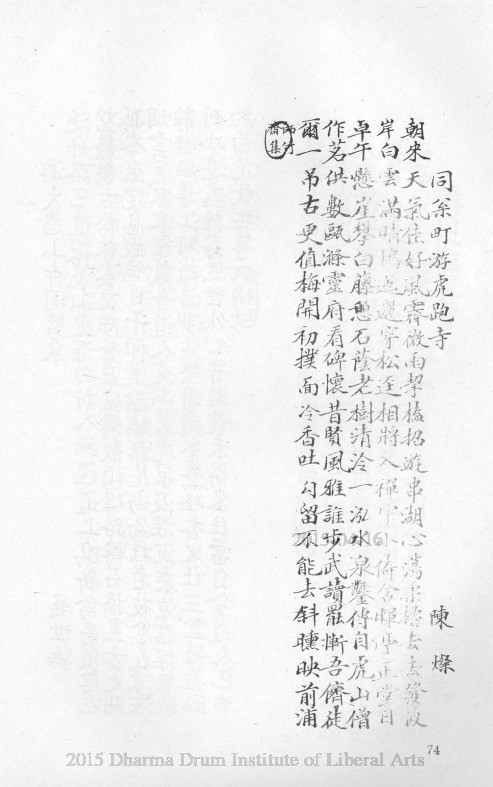 同町游虎跑寺 陳燦
朝來天氣佳好風霽微雨挈榼招遊湖心蕩去去發
岸白雲滿晴穿松逕相將入禪宇小倚暉亭正當日
卓午懸崖攀白藤憩石蔭老樹清泠一泓水泉鑿傳自虎山僧
作茗供數甌滌靈府看碑懷昔賢風雅誰步武讀罷慚吾儕徒
爾一吊古更值梅開初撲面冷香吐勾留不能去斜曛映前浦
師竹
齋集
74
2015 Dharma Drum Institute of Liberal Arts